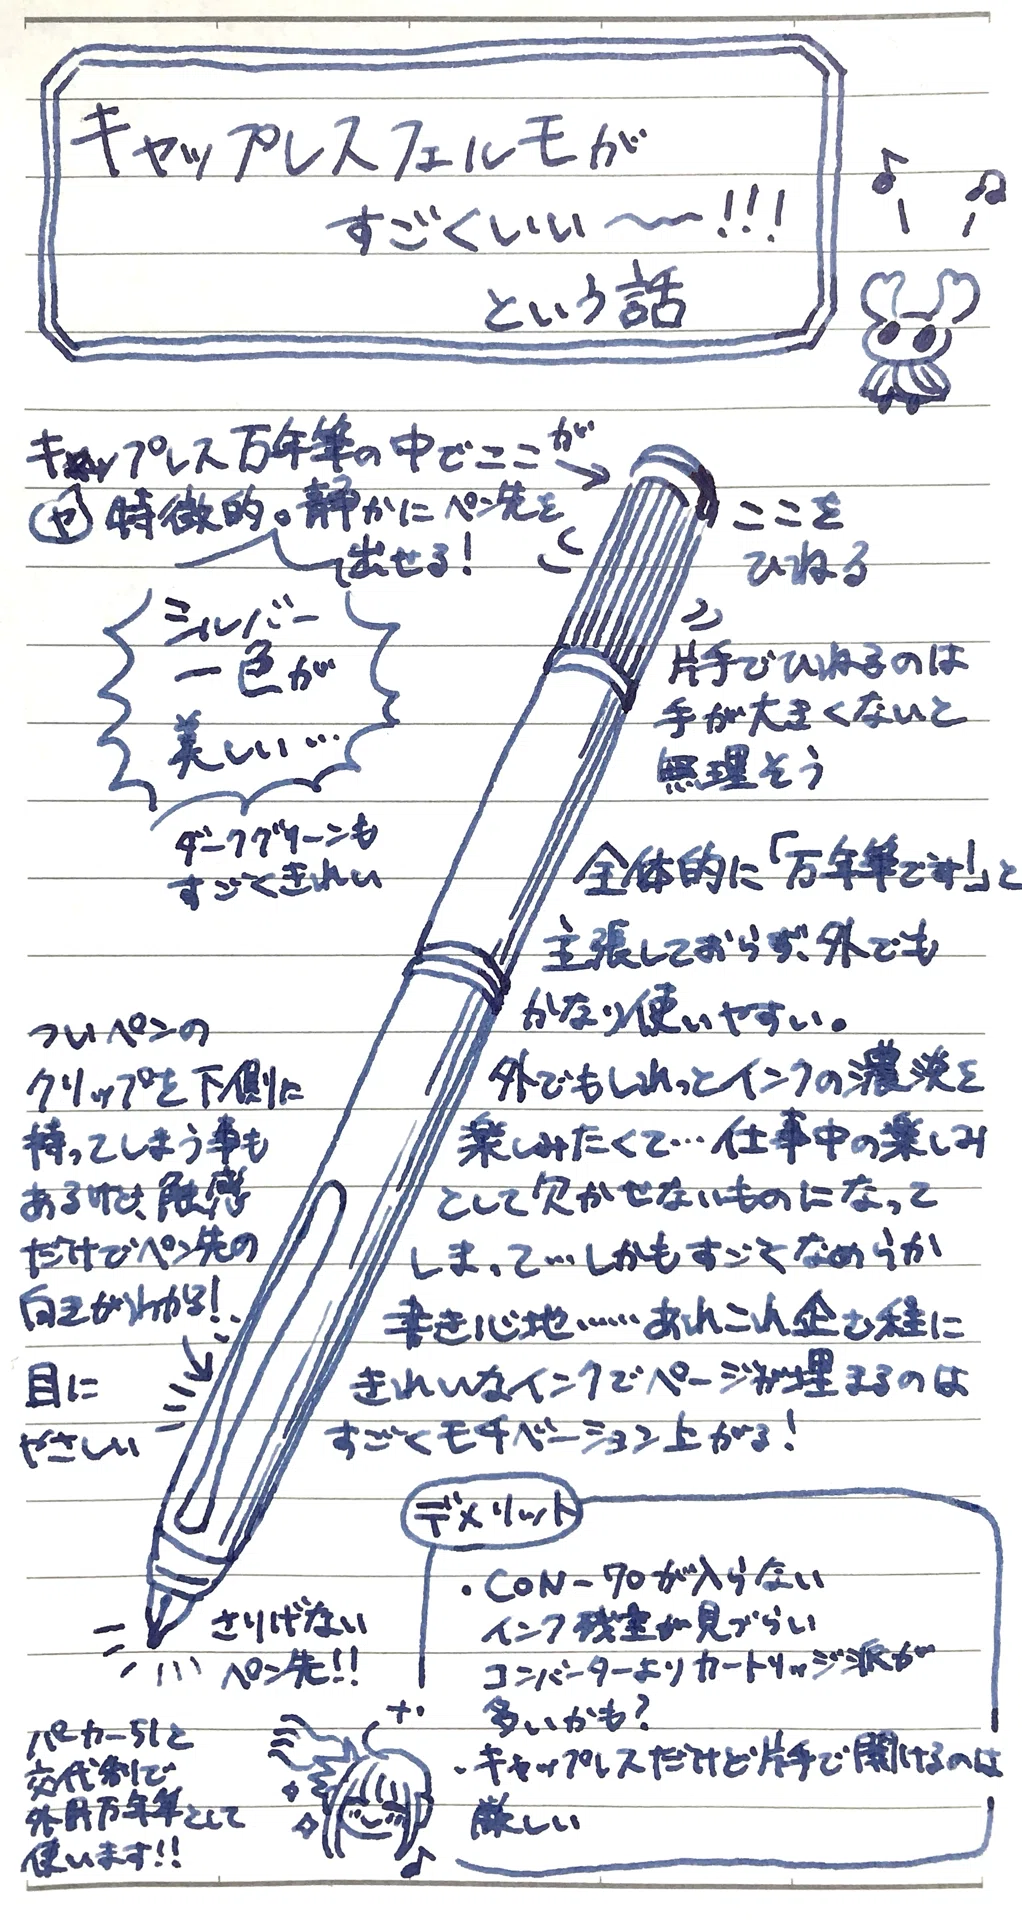 キャップレスフェルモが
すごくいい〜〜!!!
という話
キャップレス万年筆の中でここが
ヤ 特徴的。静かにペン先を
出せる!
ここを
ひねる
片手でひねるのは
手が大きくないと
無理そう
シルバー
一色が
美しい…
ダークグリーンも
すごくきれい
全体的に「万年筆です!」と
主張しておらず、外でも
かなり使いやすい。
外でもしれっとインクの濃淡を
楽しみたくて…仕事中の楽しみ
として欠かせないものになって
しまって…しかもすごくなめらか
書き心地……あれこれ企む程に
きれいなインクでページが埋まるのは
すごくモチベーション上がる!
ついペンの
クリップを下側に
持ってしまう事も
あるけど、触感
だけでペン先の
向きがわかる!
目に
やさしい
さりげない
ペン先!!
デメリット
・CON-70が入らない
インク残量が見づらい
コンバーターよりカートリッジ派が
多いかも?
・キャップレスだけど片手で開けるのは
厳しい
パーカー51と
交代制で
外用万年筆として
使います!!